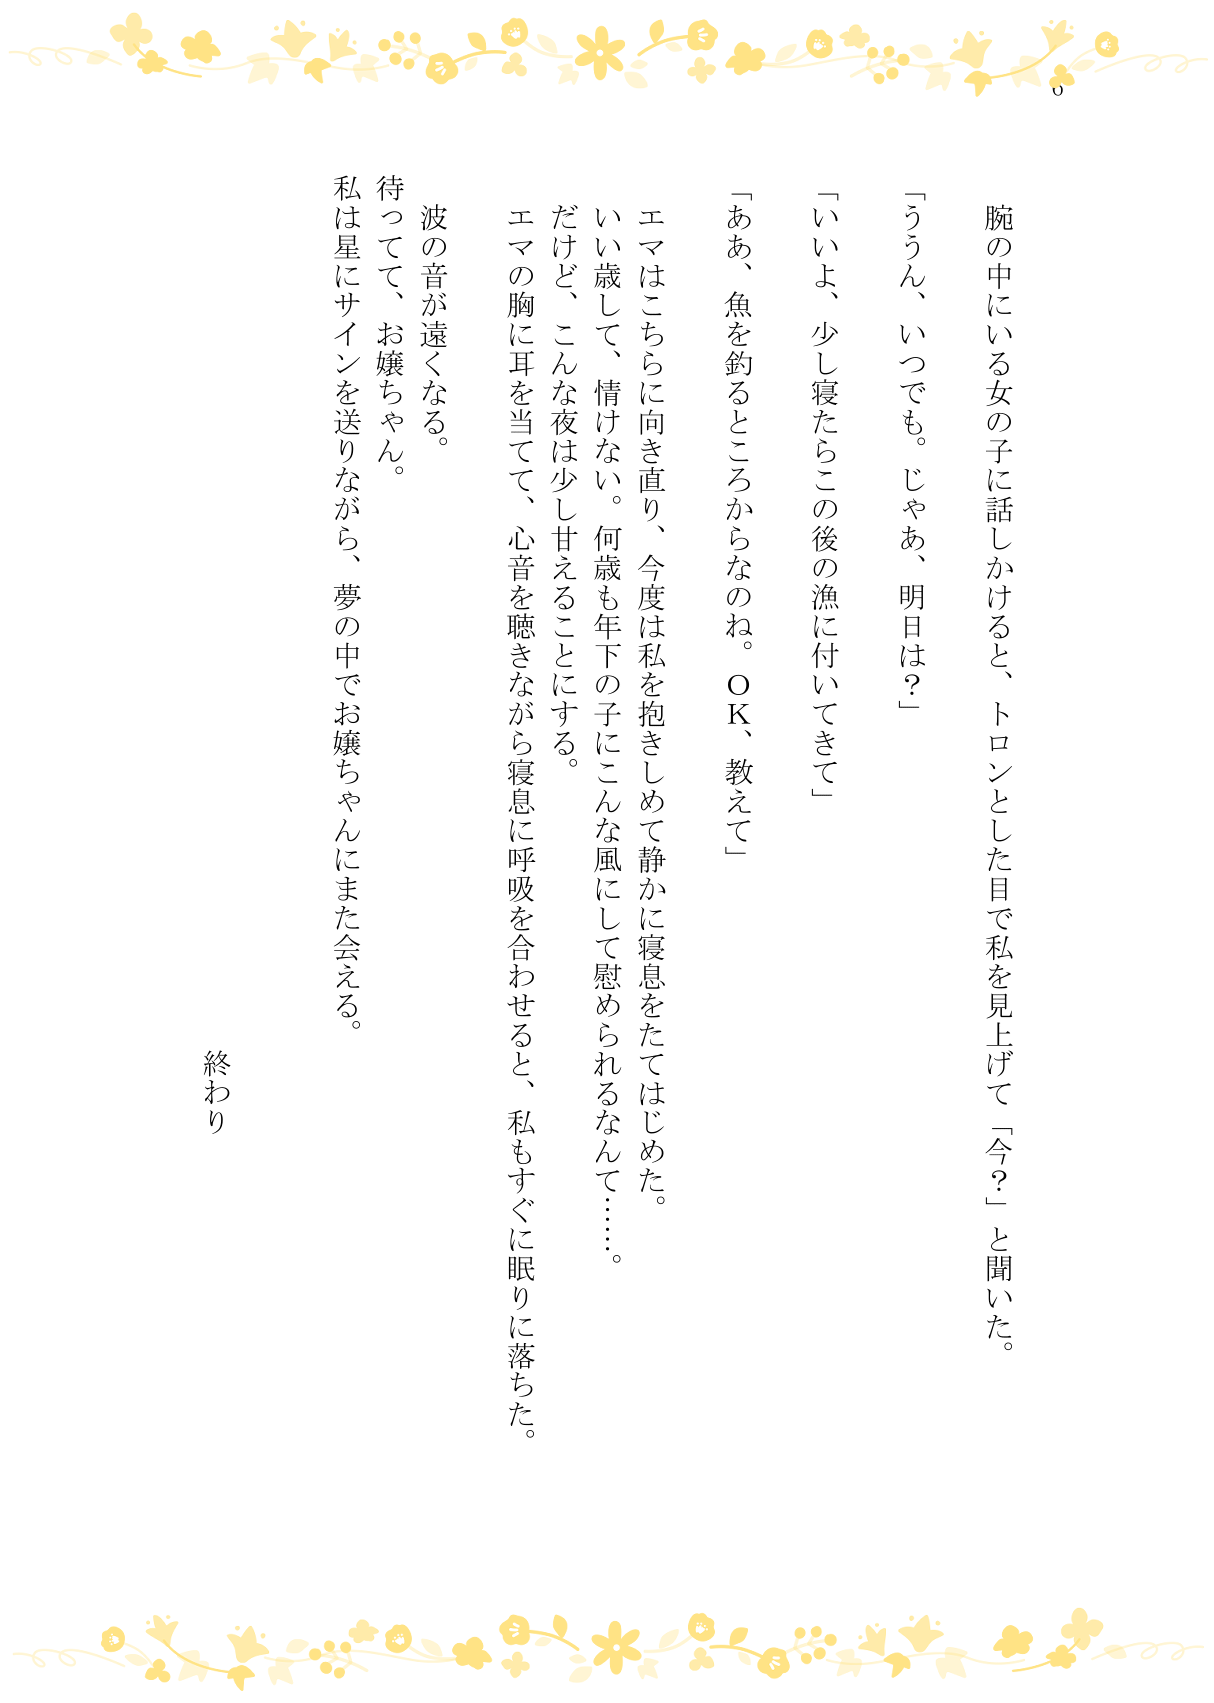 腕の中にいる女の子に話しかけると、トロンとした目で私を見上げて「今？」と聞いた。
「ううん、いつでも。じゃあ、明日は？」
「いいよ、少し寝たらこの後の漁に付いてきて」
「ああ、魚を釣るところからなのね。ＯＫ、教えて」
エマはこちらに向き直り、今度は私を抱きしめて静かに寝息をたてはじめた。
いい歳して、情けない。何歳も年下の子にこんな風にして慰められるなんて……。
だけど、こんな夜は少し甘えることにする。
エマの胸に耳を当てて、心音を聴きながら寝息に呼吸を合わせると、私もすぐに眠りに落ちた。
波の音が遠くなる。
待ってて、お嬢ちゃん。
私は星にサインを送りながら、夢の中でお嬢ちゃんにまた会える。
終わり